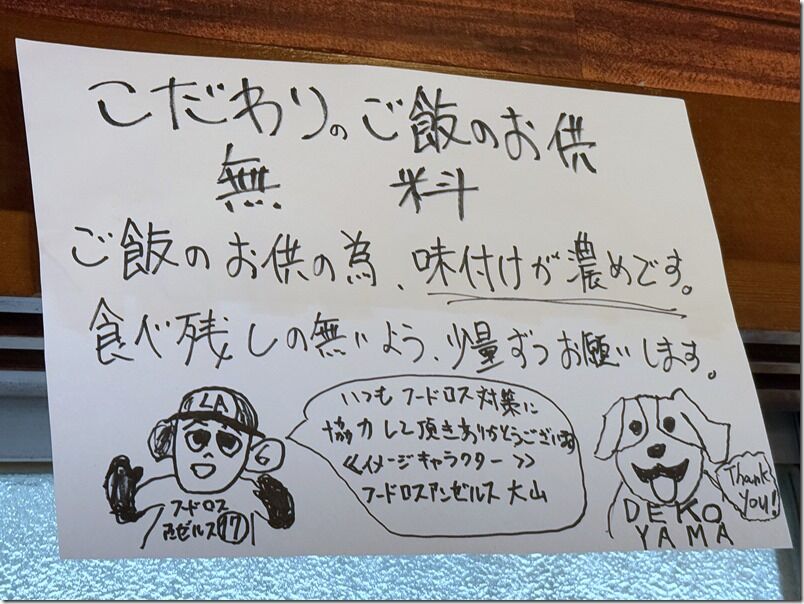 こだわりのご飯のお供
無 料
ご飯のお供の為、味付けが濃めです。
食べ残しの無いよう、少量ずつお願いします。
LA
フードロス
アンゼルス 17
いつもフードロス対策に
協力して頂きありがとうございます
≪イメージキャラクター≫
フードロスアンゼルス 大山
Thank
you!
DEKO
YAMA